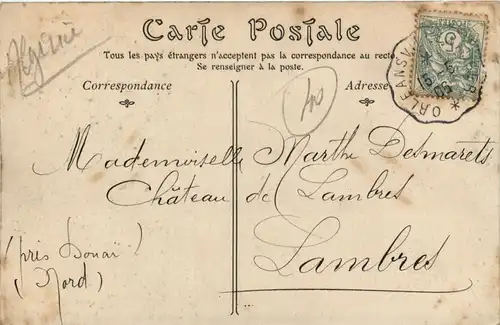 Algérie
Carte Postale
Tous les pays étrangers n'acceptent pas la correspondance au recto
Se renseigner à la poste.
Correspondance
Adresse
40
ORLEANSV
5
Mademoiselle Marthe Desmarets
Château de Lambres
Lambres
(près Douai)
(Nord)